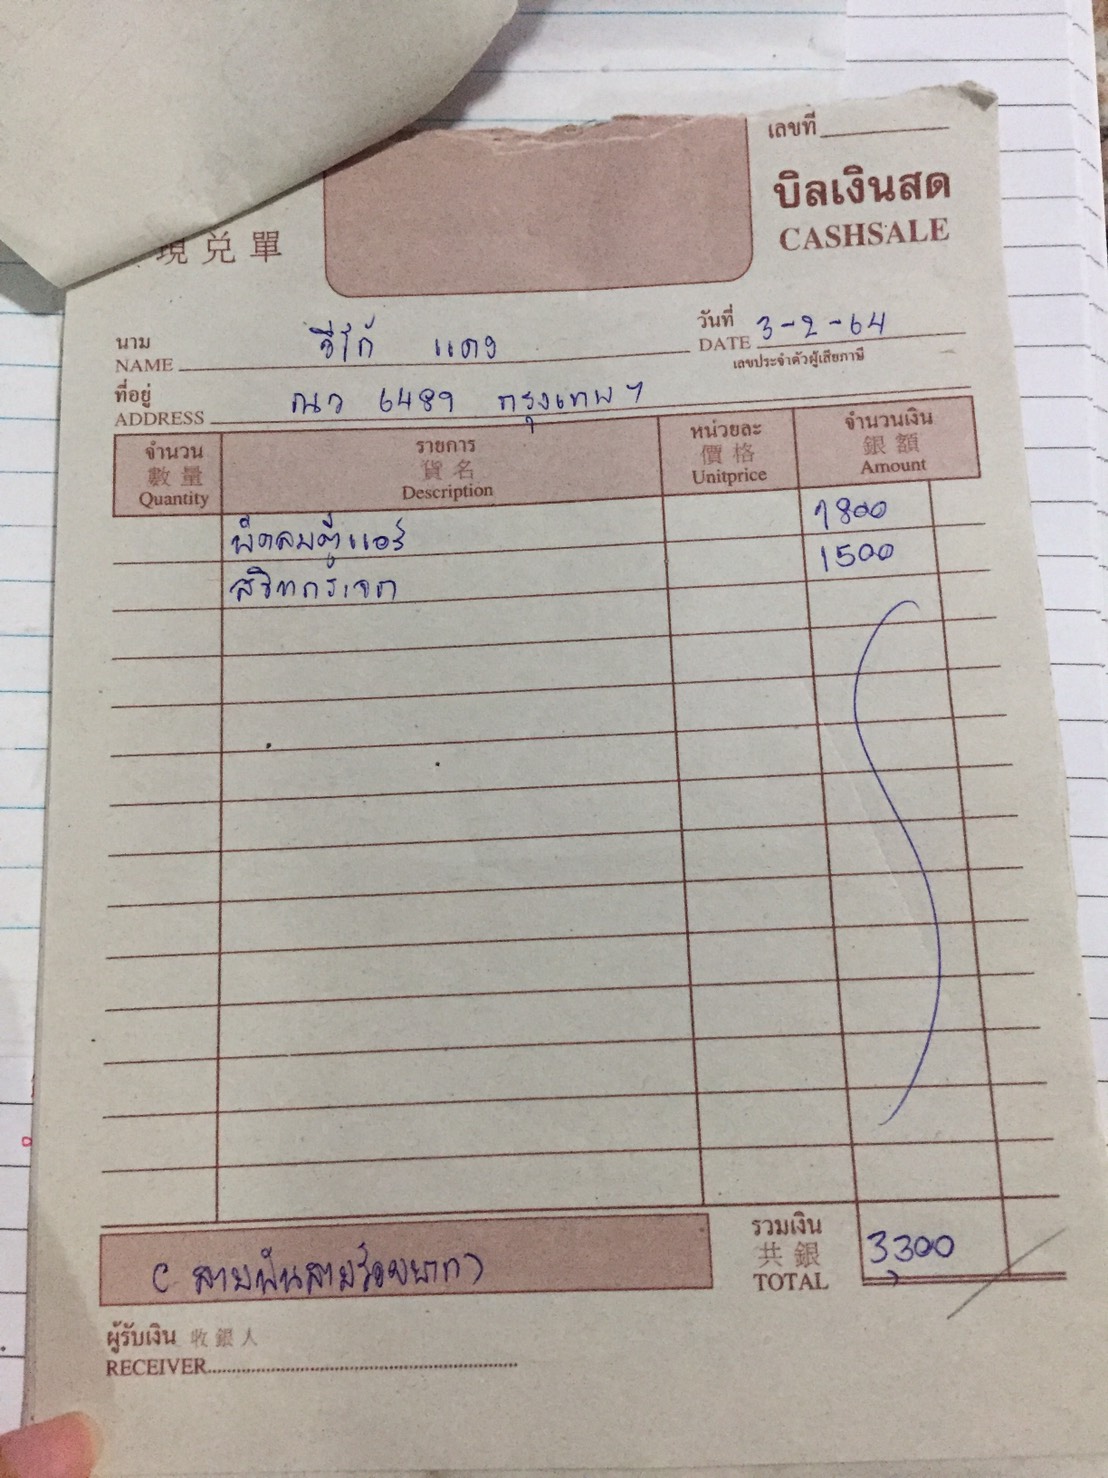 เลขที่
บิลเงินสด
CASHSALE
現兌單
นาม
NAME
วีโก้ แดง
วันที่
DATE 3-2-64
เลขประจำตัวผู้เสียภาษี
ที่อยู่
ADDRESS
ณว 6489 กรุงเทพฯ
จำนวน รายการ หน่วยละ จำนวนเงิน
數量 貨名 價格 銀額
Quantity Description Unitprice Amount
พัดลมตู้แอร์ 1800
สวิทกระจก 1500
(สามพันสามร้อยบาท)
รวมเงิน
共銀
TOTAL 3,300
ผู้รับเงิน 收銀人
RECEIVER